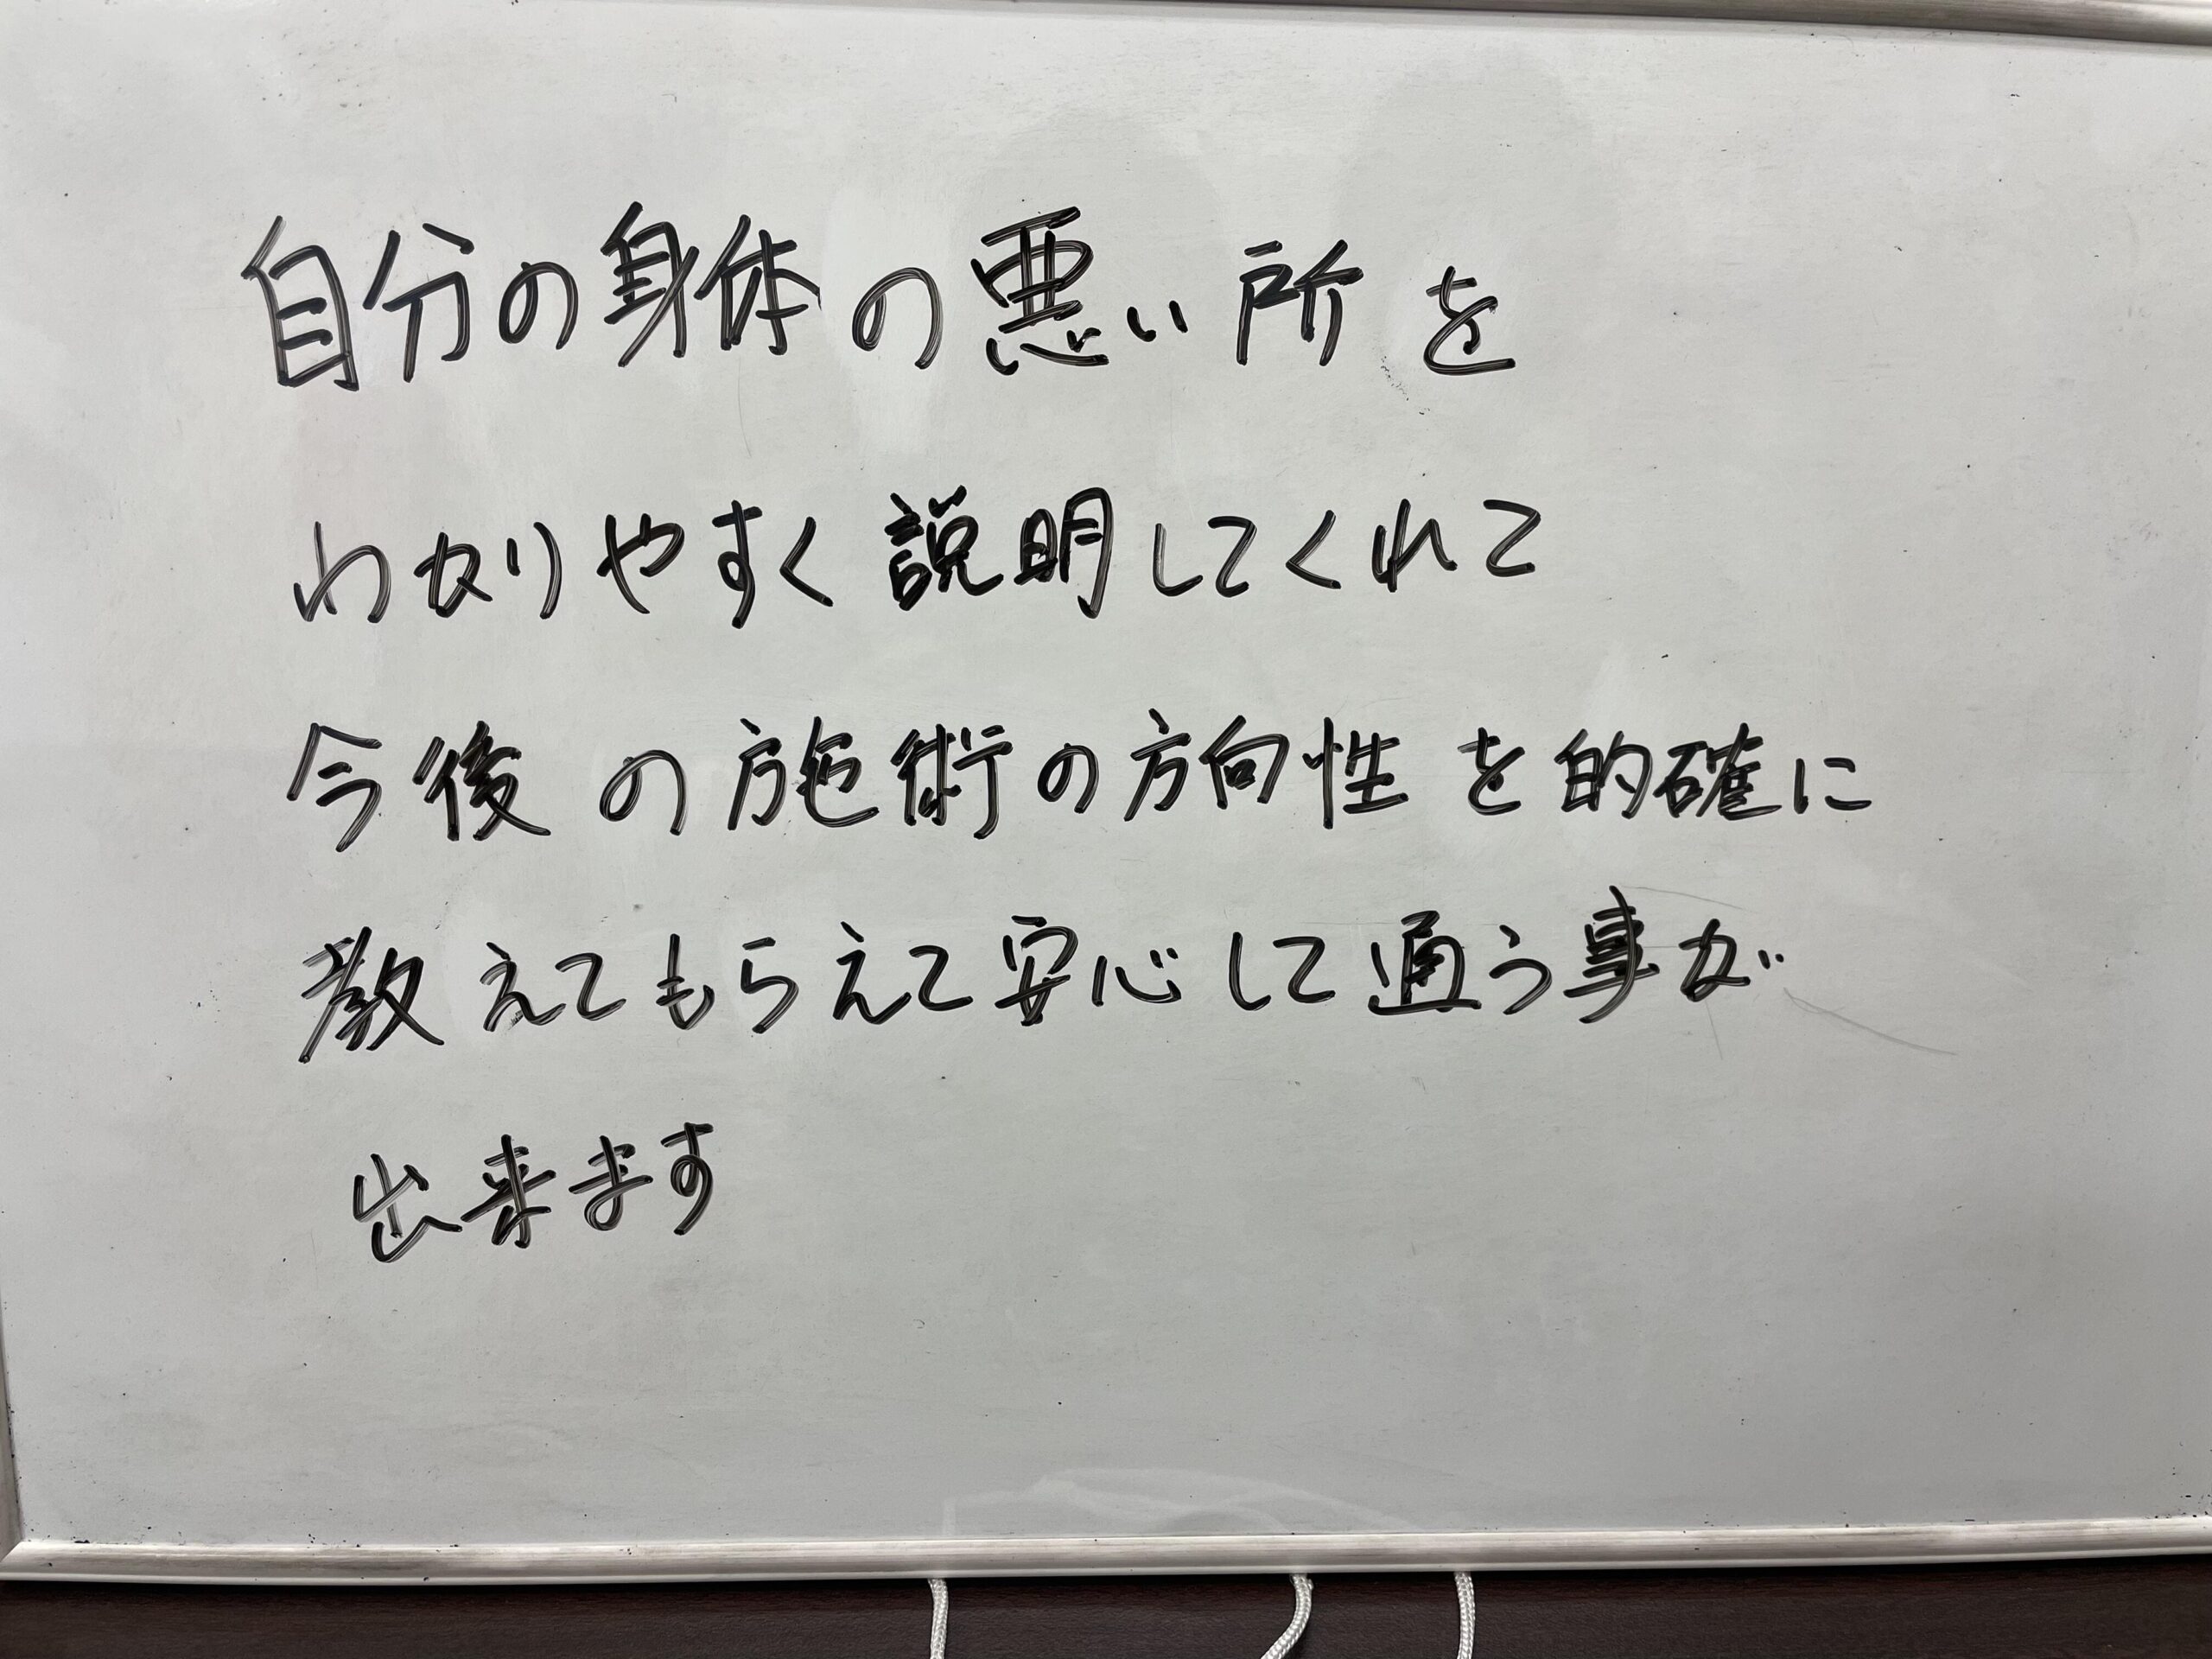 自分の身体の悪い所を
わかりやすく説明してくれて
今後の施術の方向性を的確に
教えてもらえて安心して通う事が
出来ます